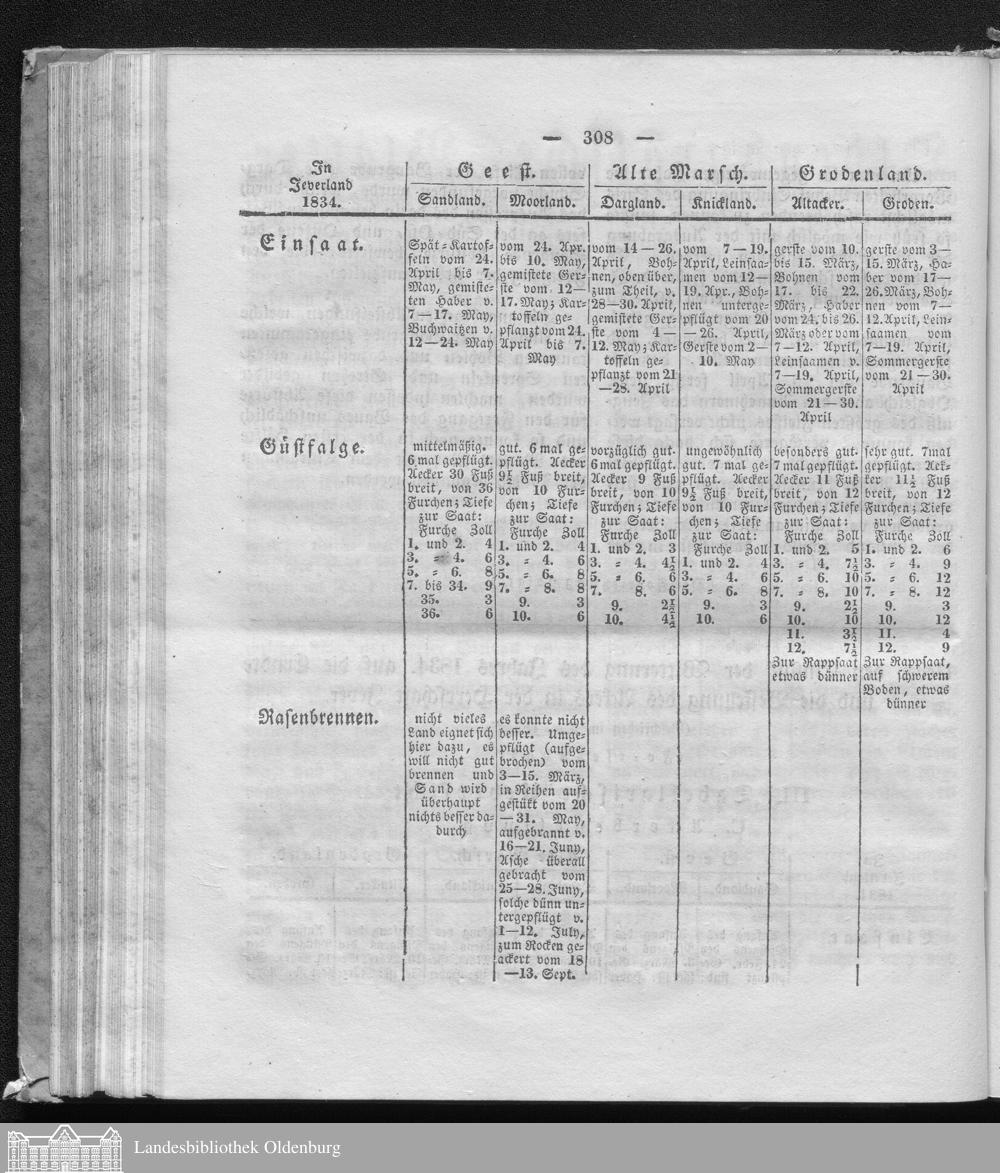 — 308 —
In
Jeverland
1834.
Geest.
Alte Marsch.
Grodenland.
Sandland.
Moorland.
Dargland.
Knickland.
Altacker.
Groden.
Einsaat.
Spät-Kartof-
feln vom 24.
April bis 7.
May, gemiste-
ten Haber v.
7—17. May,
Buchwaizen v.
12—24. May
vom 24. Apr.
bis 10. May,
gemistete Ger-
ste vom 12—
17. May; Kar-
toffeln ge-
pflanzt vom 24.
April bis 7.
May
vom 14—26.
April, Boh-
nen, oben über,
zum Theil, v.
28—30. April,
gemistete Ger-
ste vom 4—
12. May; Kar-
toffeln ge-
pflanzt vom 21
—28. April
vom 7—19.
April, Leinsaa-
men vom 12—
19. Apr., Boh-
nen unterge-
pflügt vom 20
—26. April,
Gerste vom 2—
10. May
gerste vom 10.
bis 15. März,
Bohnen vom
17. bis 22.
März, Haber
vom 24. bis 26.
März oder vom
7—12. April,
Leinsaamen v.
7—19. April,
Sommergerste
vom 21—30.
April
gerste vom 3—
15. März, Ha-
ber vom 17—
26. März, Boh-
nen vom 7—
12. April, Lein-
saamen vom
7—19. April,
Sommergerste
vom 21—30.
April
Güstfalge.
mittelmäßig.
6 mal gepflügt.
Aecker 30 Fuß
breit, von 36
Furchen; Tiefe
zur Saat:
Furche Zoll
1. und 2. 4
3. = 4. 6
5. = 6. 8
7. bis 34. 9
35. 3
36. 6
gut. 6 mal ge-
pflügt. Aecker
9½ Fuß breit,
von 10 Fur-
chen; Tiefe
zur Saat:
Furche Zoll
1. und 2. 4
3. = 4. 6
5. = 6. 8
7. = 8. 8
9. 3
10. 6
vorzüglich gut.
6 mal gepflügt.
Aecker 9 Fuß
breit, von 10
Furchen; Tiefe
zur Saat:
Furche Zoll
1. und 2. 3
3. = 4. 4½
5. = 6. 6
7. 8. 6
9. 2½
10. 4½
ungewöhnlich
gut. 7 mal ge-
pflügt. Aecker
9½ Fuß breit,
von 10 Fur-
chen; Tiefe
zur Saat:
Furche Zoll
1. und 2. 4
3. = 4. 6
5. = 6. 8
9. 3
10. 6
besonders gut.
7 mal gepflügt.
Aecker 11 Fuß
breit, von 12
Furchen; Tiefe
zur Saat:
Furche Zoll
1. und 2. 5
3. = 4. 7½
5. = 6. 10
7. = 8. 10
9. 2½
10. 10
11. 3½
12. 7½
Zur Rappsaat
etwas dünner
sehr gut. 7mal
gepflügt. Aek-
ker 11½ Fuß
breit, von 12
Furchen; Tiefe
zur Saat:
Furche Zoll
1. und 2. 6
3. = 4. 9
5. = 6. 12
7. = 8. 12
9. 3
10. 12
11. 4
12. 9
Zur Rappsaat,
auf schwerem
Boden, etwas
dünner
Rasenbrennen.
nicht vieles
Land eignet sich
hier dazu, es
will nicht gut
brennen und
Sand wird
überhaupt
nichts besser da-
durch
es konnte nicht
besser. Umge-
pflügt (aufge-
brochen) vom
3—15. März,
in Reihen auf-
gestükt vom 20
—31. May,
aufgebrannt v.
16—21. Juny,
Asche überall
gebracht vom
25—28. Juny,
solche dünn un-
tergepflügt v.
1—12. July,
zum Rocken ge-
ackert vom 18
—13. Sept.
Landesbibliothek Oldenburg